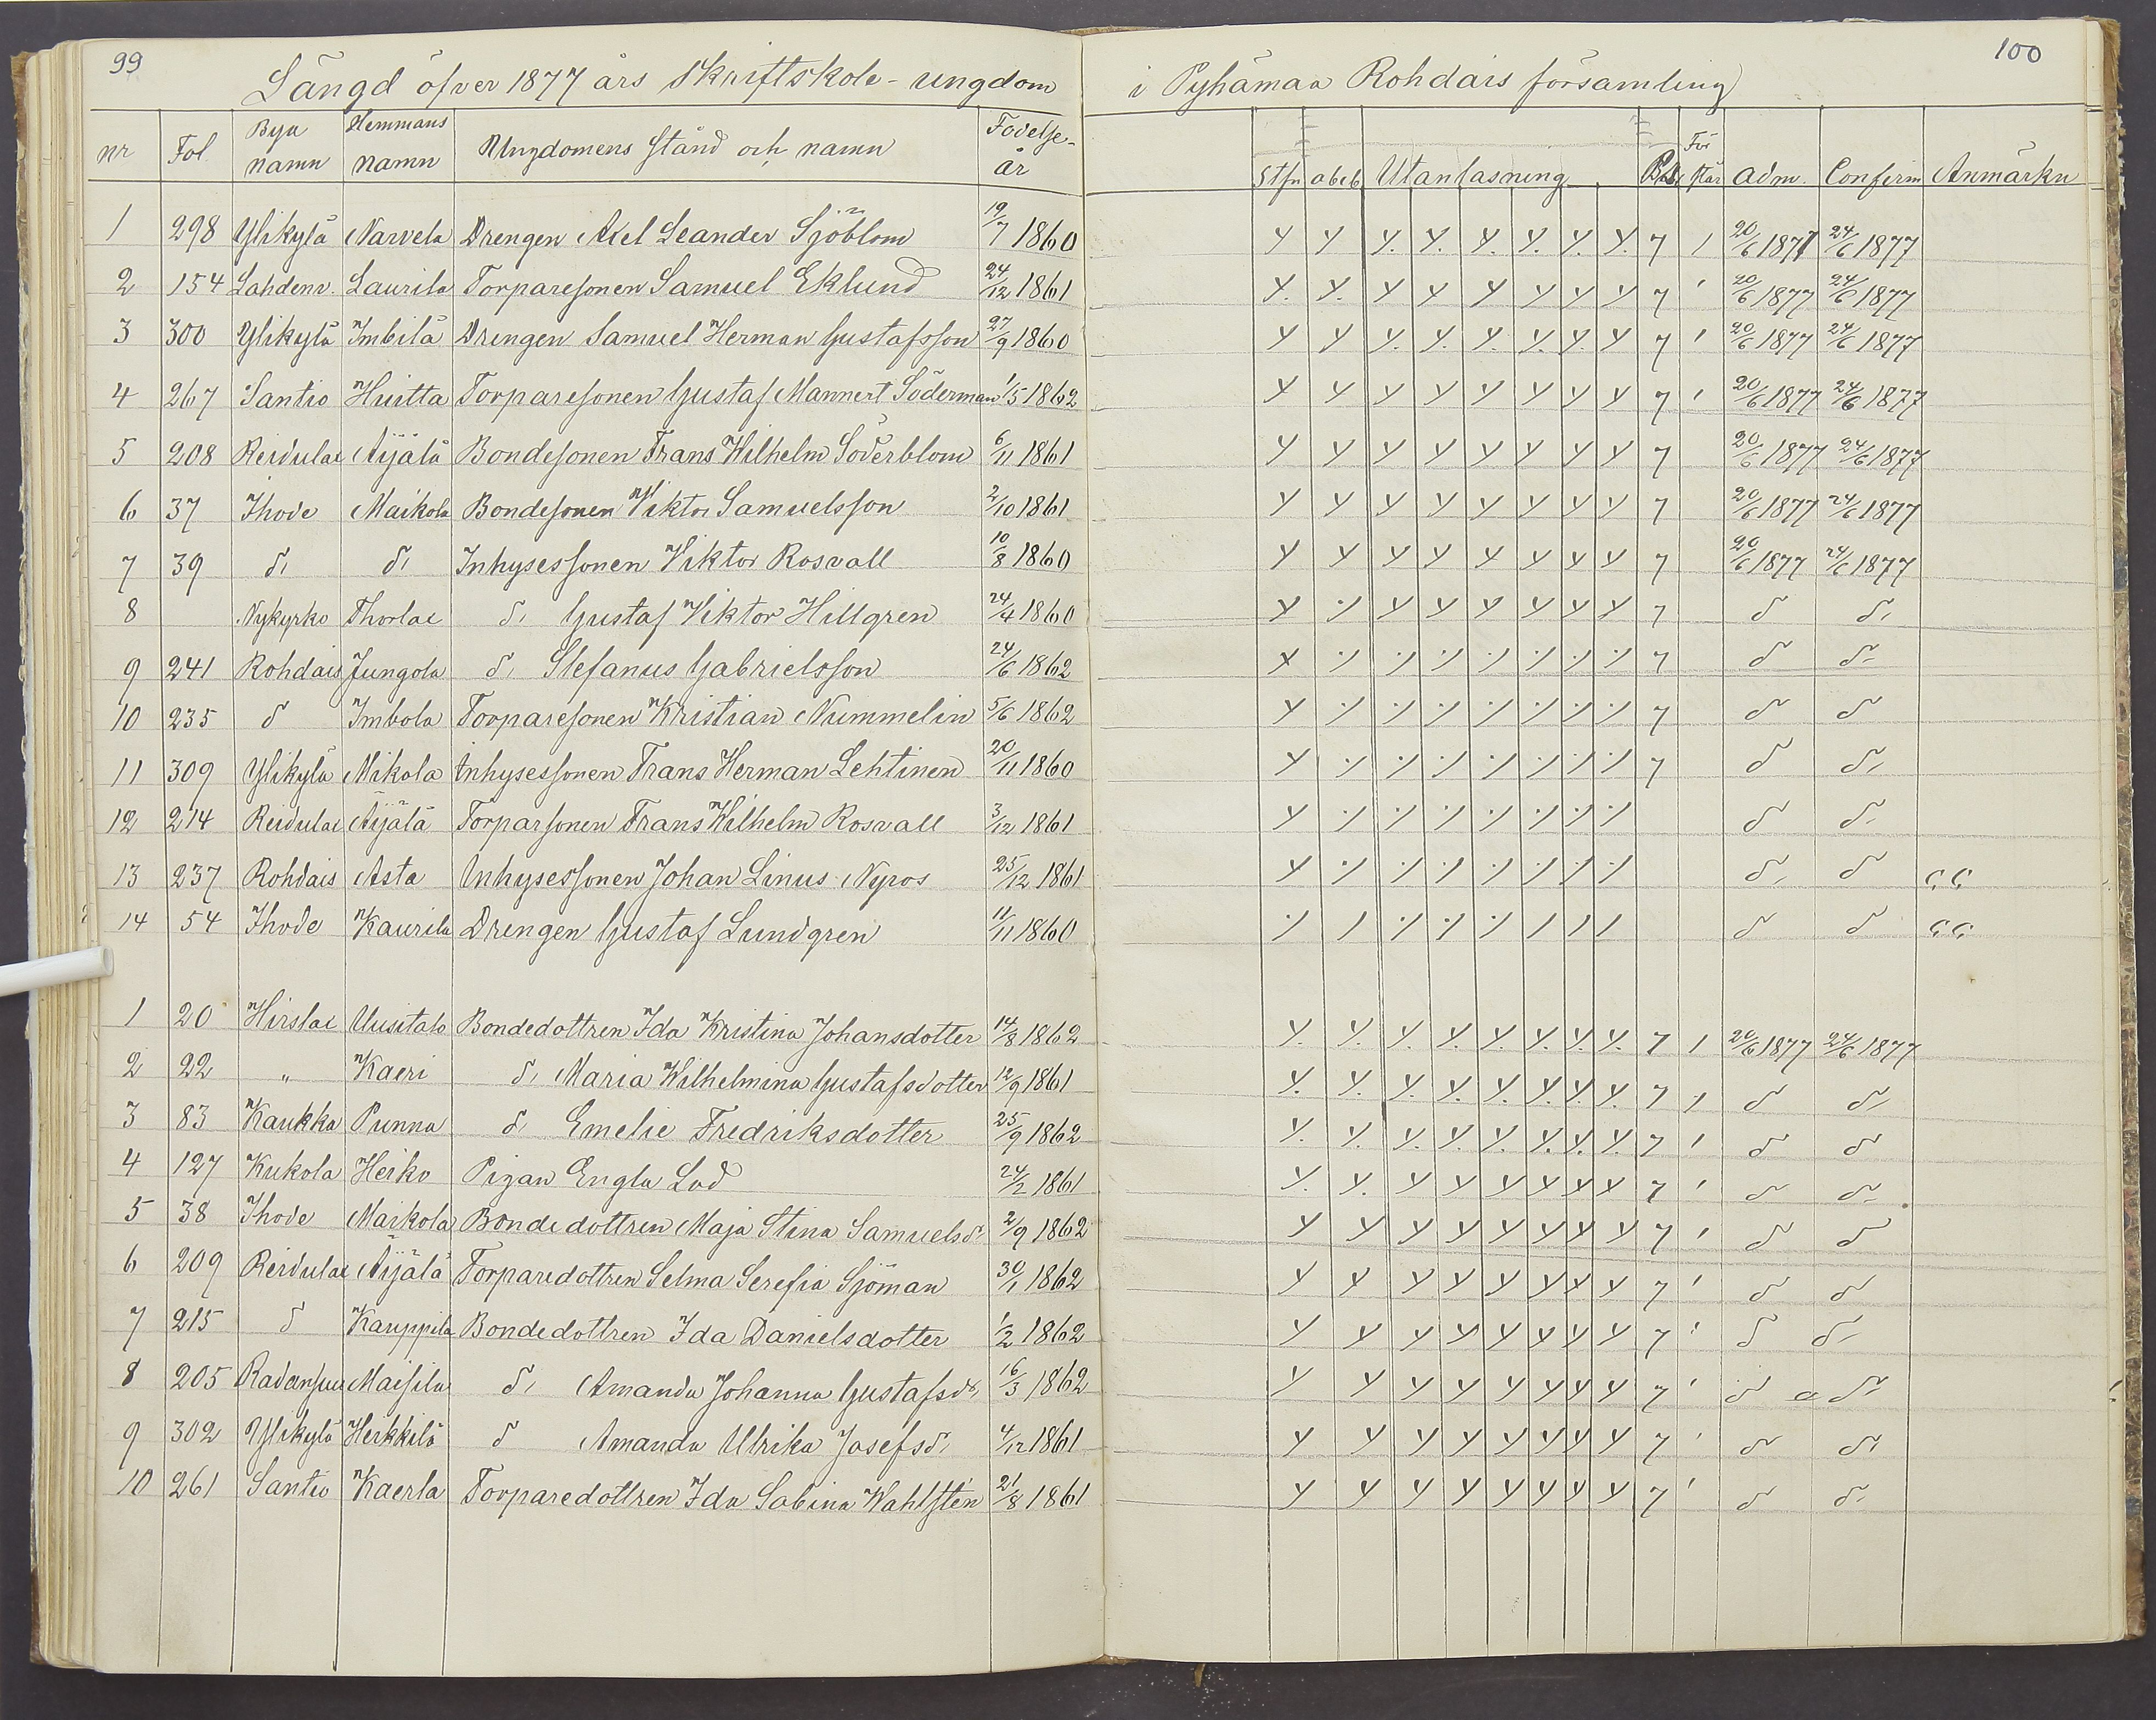 99
100
Längd öfver 1877 års Skriftskole-ungdom i Pyhämaa Rohdais församling
nr Fol. Bya namn Hemmans namn Ungdomens stånd och namn Födelse-år Stfn abcb Utanläsning För står Adm. Confirm Anmärkn
1 298 Ylikylä Narvela Drengen Axel Leander Sjöblom 19/7 1860 7 1 20/6 1877 24/6 1877
2 154 Lahdenr. Laurila Torparesonen Samuel Eklund 24/12 1861 7 ' 20/6 1877 24/6 1877
3 300 Ylikylä Imbilä Drengen Samuel Herman Gustafsson 27/9 1860 7 ' 20/6 1877 24/6 1877
4 267 Santio Huitta Torparesonen Gustaf Mannert Söderman 1/5 1862 7 ' 20/6 1877 24/6 1877
5 208 Reidulax Äijälä Bondesonen Frans Wilhelm Söderblom 6/11 1861 7 20/6 1877 24/6 1877
6 37 Ihode Maikola Bondesonen Viktor Samuelsson 2/10 1861 7 20/6 1877 24/6 1877
7 39 d: d: Inhysessonen Viktor Rosvall 10/8 1860 7 20/6 1877 24/6 1877
8 Nykyrko Thorlax d: Gustaf Viktor Hillgren 24/4 1860 7 d d:
9 241 Rohdais Jungola d: Stefanus Gabrielsson 24/6 1862 7 d d:
10 235 d Imbola Torparesonen Kristian Nummelin 5/6 1862 7 d d
11 309 Ylikylä Mikola Inhysessonen Frans Herman Lehtinen 20/11 1860 7 d d:
12 214 Reidulax Äijälä Torparsonen Frans Wilhelm Rosvall 3/12 1861 d d:
13 237 Rohdais Asta Inhysessonen Johan Linus Nyros 25/12 1861 d: d
14 54 Ihode Kaurila Drengen Gustaf Lundgren 11/11 1860 d d
1 20 Hirslax Uusitalo Bondedottren Ida Kristina Johansdotter 14/8 1862 7 1 20/6 1877 24/6 1877
2 22 " Kaeri d: Maria Wilhelmina Gustafsdotter 12/9 1861 7 1 d d:
3 83 Kaukka Punna d: Emelie Fredriksdotter 25/9 1862 7 ' d d
4 127 Kukola Heiko Pigan Engla Lod 24/2 1861 7 ' d d:
5 38 Ihode Maikola Bondedottren Maja Stina Samuelsd: 2/9 1862 7 ' d d
6 209 Reidulax Äijälä Torparedottren Selma Serefia Sjöman 30/1 1862 7 ' d d
7 215 d Kauppila Bondedottren Ida Danielsdotter 1/2 1862 7 ' d d:
8 205 Maisila d: Amanda Johanna Gustafsd: 16/3 1862 7 ' d d:
9 302 Ylikylä Heikkilä d Amanda Ulrika Josefsd: 4/12 1861 7 ' d d:
10 261 Santio Kaerla Torparedottren Ida Sabina Wahlsten 21/8 1861 7 ' d d: